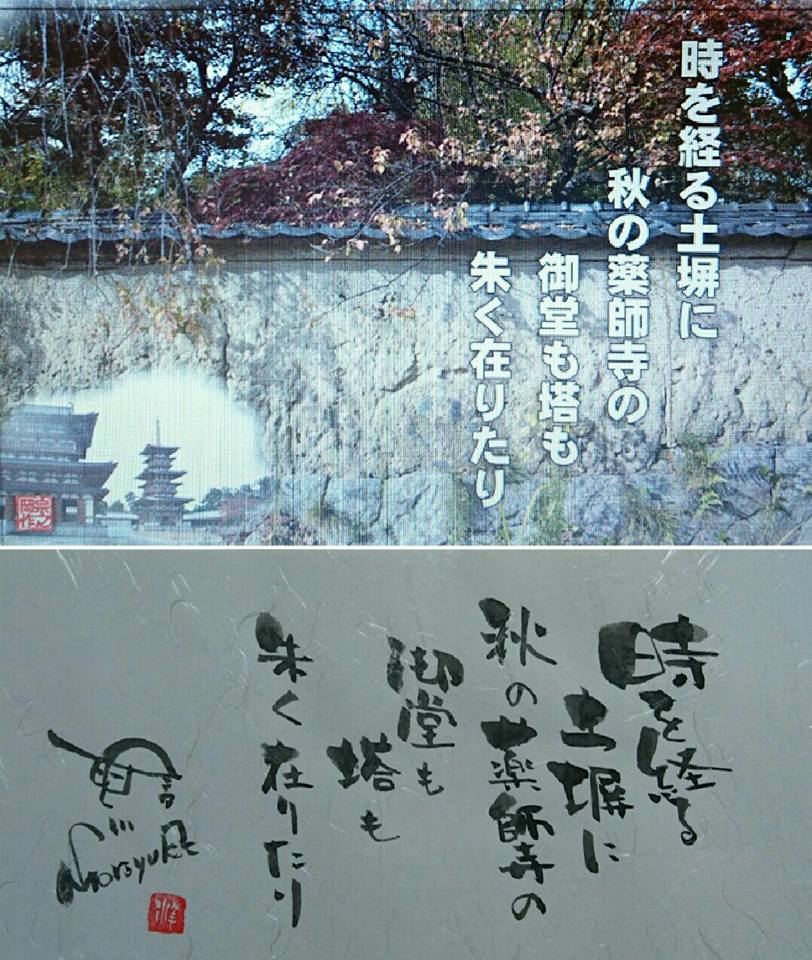 時を経る土塀に
秋の薬師寺の
御堂も塔も
朱く在りたり
時を経る
土塀に
秋の薬師寺の
御堂も
塔も
朱く在りたり
Noriyuki